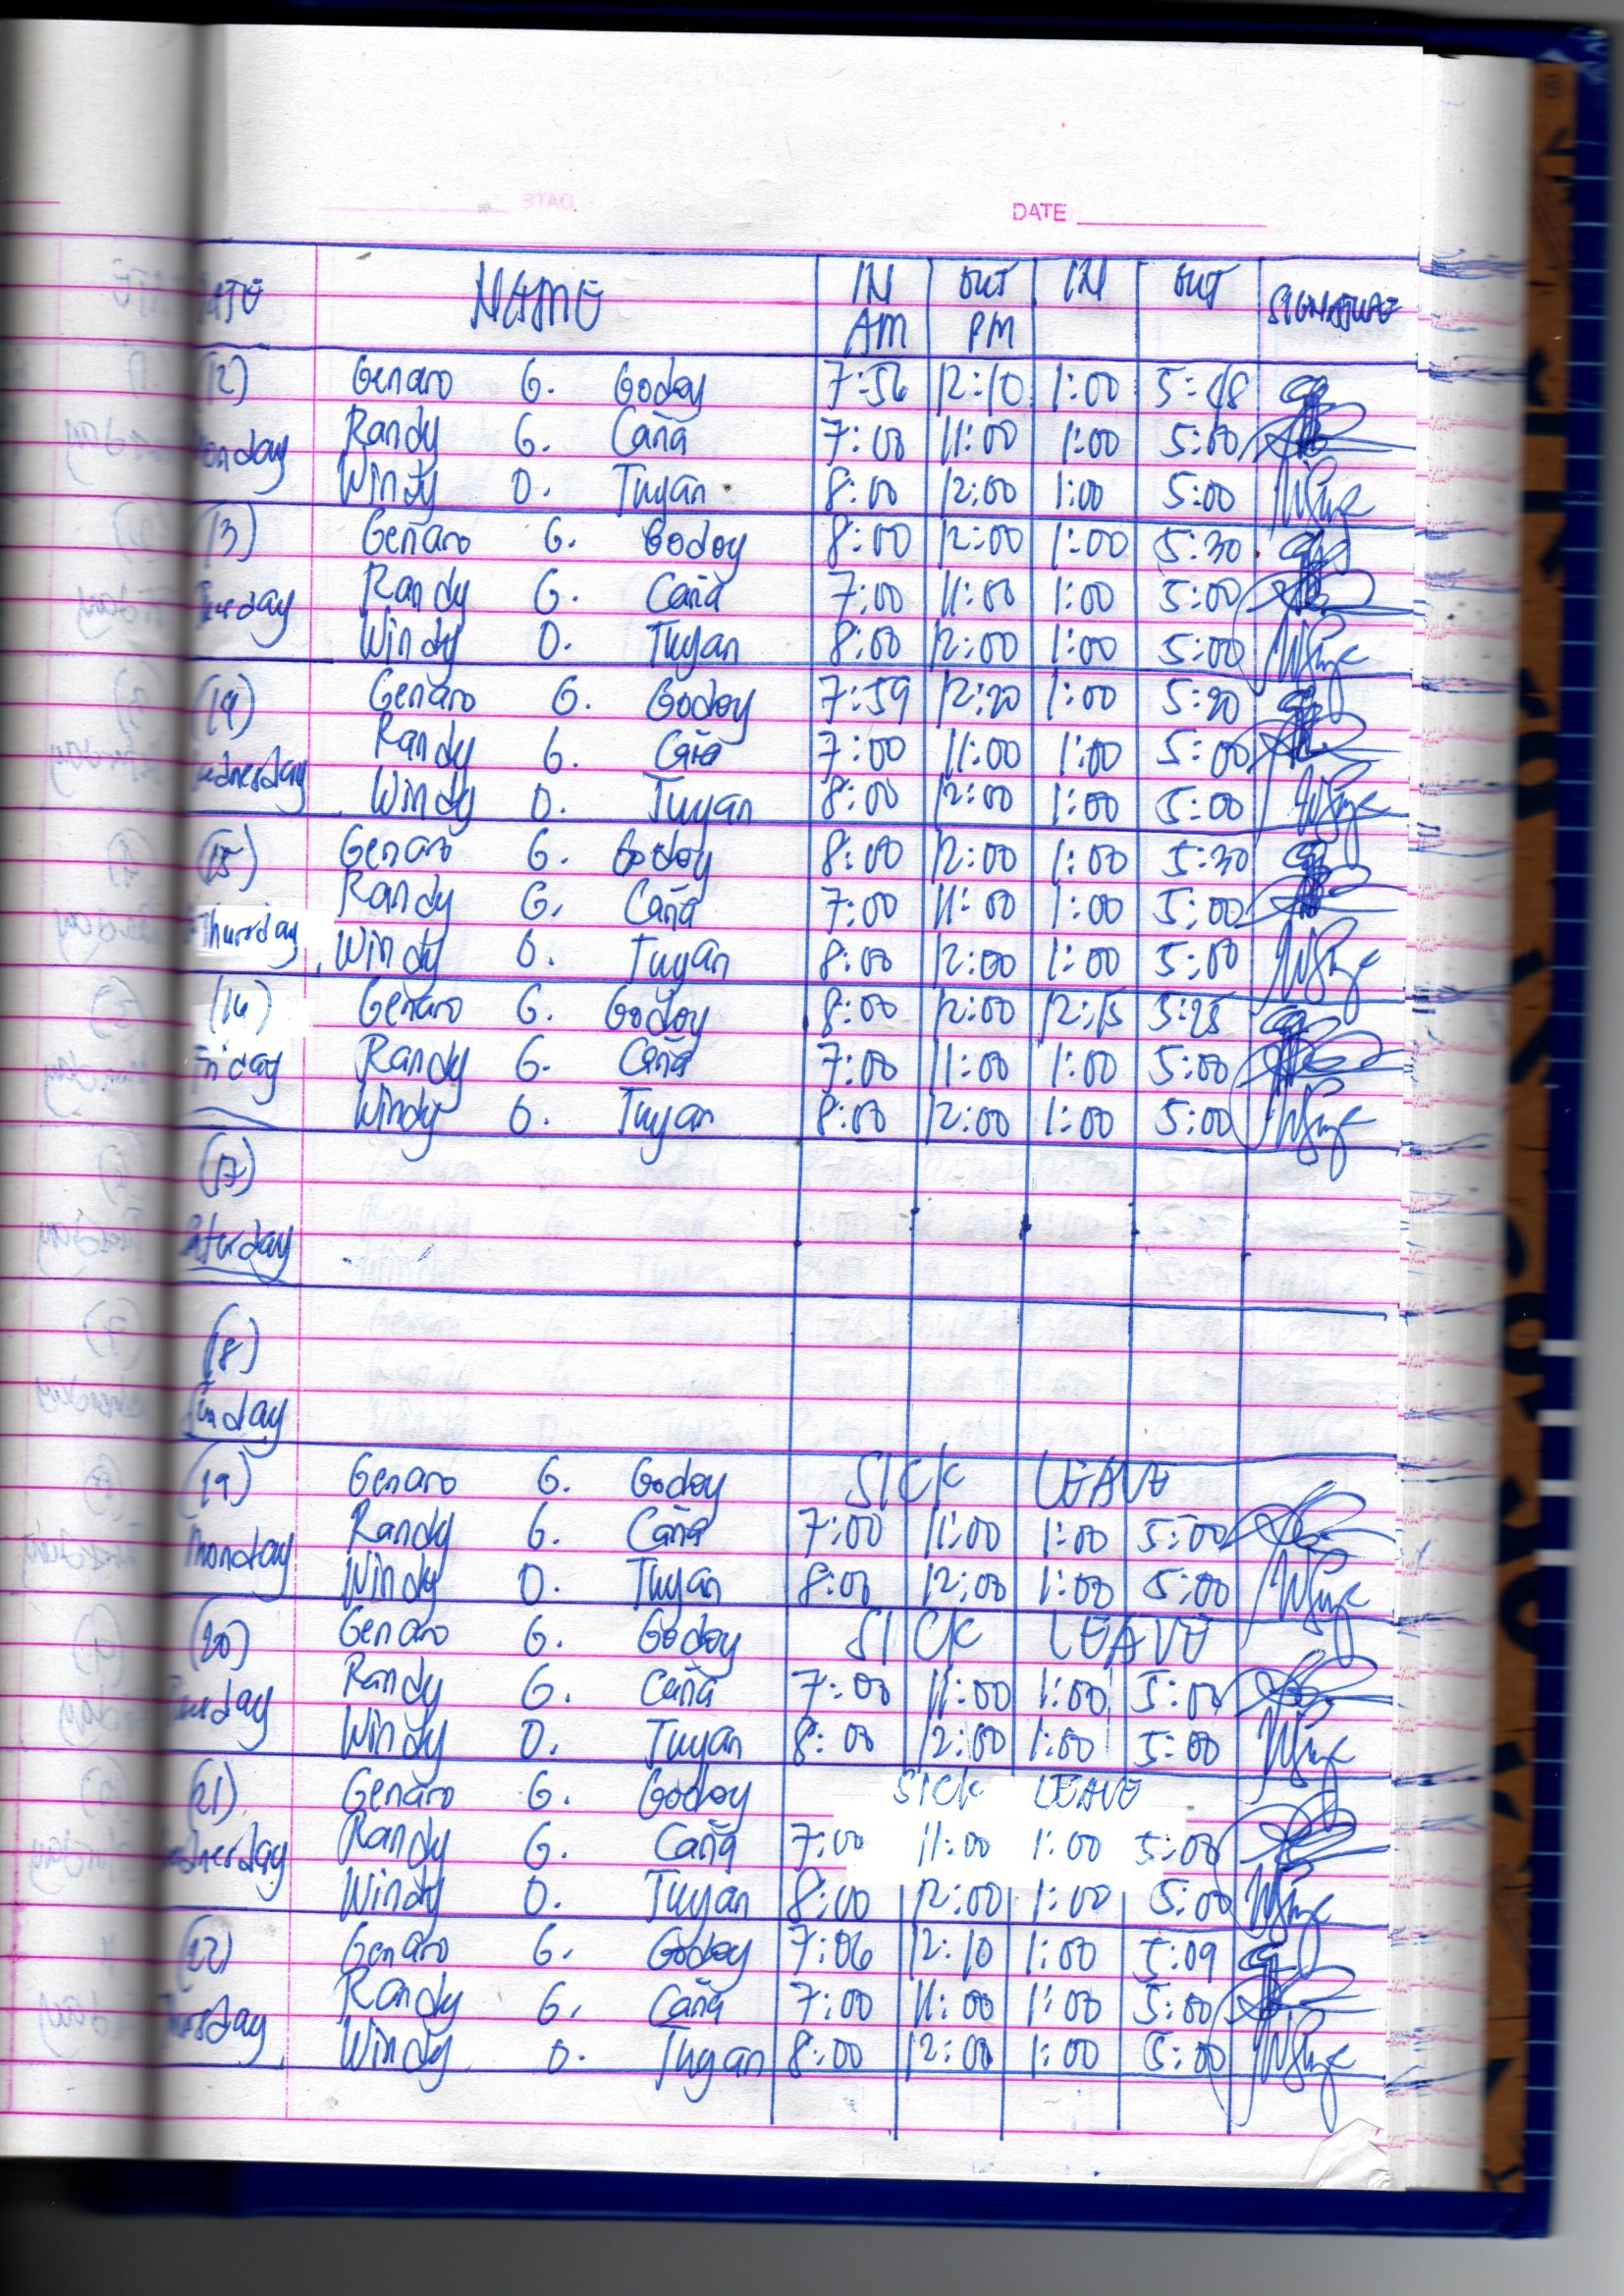 DATE
NAME IN OUT IN OUT SIGNATURE
AM PM
(12) Genaro G. Godoy 7:56 12:10 1:00
Randy G. Caña 7:00 11:00 1:00 5:00
Windy O. Tuyan 8:00 12:00 1:00 5:00
(13) Genaro G. Godoy 8:00 12:00 1:00 5:30
Randy G. Caña 7:00 11:00 1:00 5:00
Windy O. Tuyan 8:00 12:00 1:00 5:00
(14) Genaro G. Godoy 7:59 12:20 1:00 5:20
Randy G. Caña 7:00 11:00 1:00 5:00
Windy O. Tuyan 8:00 12:00 1:00 5:00
(15) Genaro G. Godoy 8:00 12:00 1:00 5:30
Randy G. Caña 7:00 11:00 1:00 5:00
Thursday Windy O. Tuyan 8:00 12:00 1:00 5:00
(16) Genaro G. Godoy 8:00 12:00 12:15 5:25
Friday Randy G. Caña 7:00 11:00 1:00 5:00
Windy O. Tuyan 8:00 12:00 1:00 5:00
(17)
Saturday
(18)
Sunday
(19) Genaro G. Godoy SICK LEAVE
Randy G. Caña 7:00 11:00 1:00 5:00
Monday Windy O. Tuyan 8:00 12:00 1:00 5:00
(20) Genaro G. Godoy SICK LEAVE
Randy G. Caña 7:00 11:00 1:00 5:00
Windy O. Tuyan 8:00 12:00 1:00 5:00
(21) Genaro G. Godoy SICK LEAVE
Randy G. Caña 7:00 11:00 1:00 5:00
Windy O. Tuyan 8:00 12:00 1:00 5:00
(22) Genaro G. Godoy 7:06 12:10 1:00 5:09
Randy G. Caña 7:00 11:00 1:00 5:00
Windy O. Tuyan 8:00 12:00 1:00 5:00